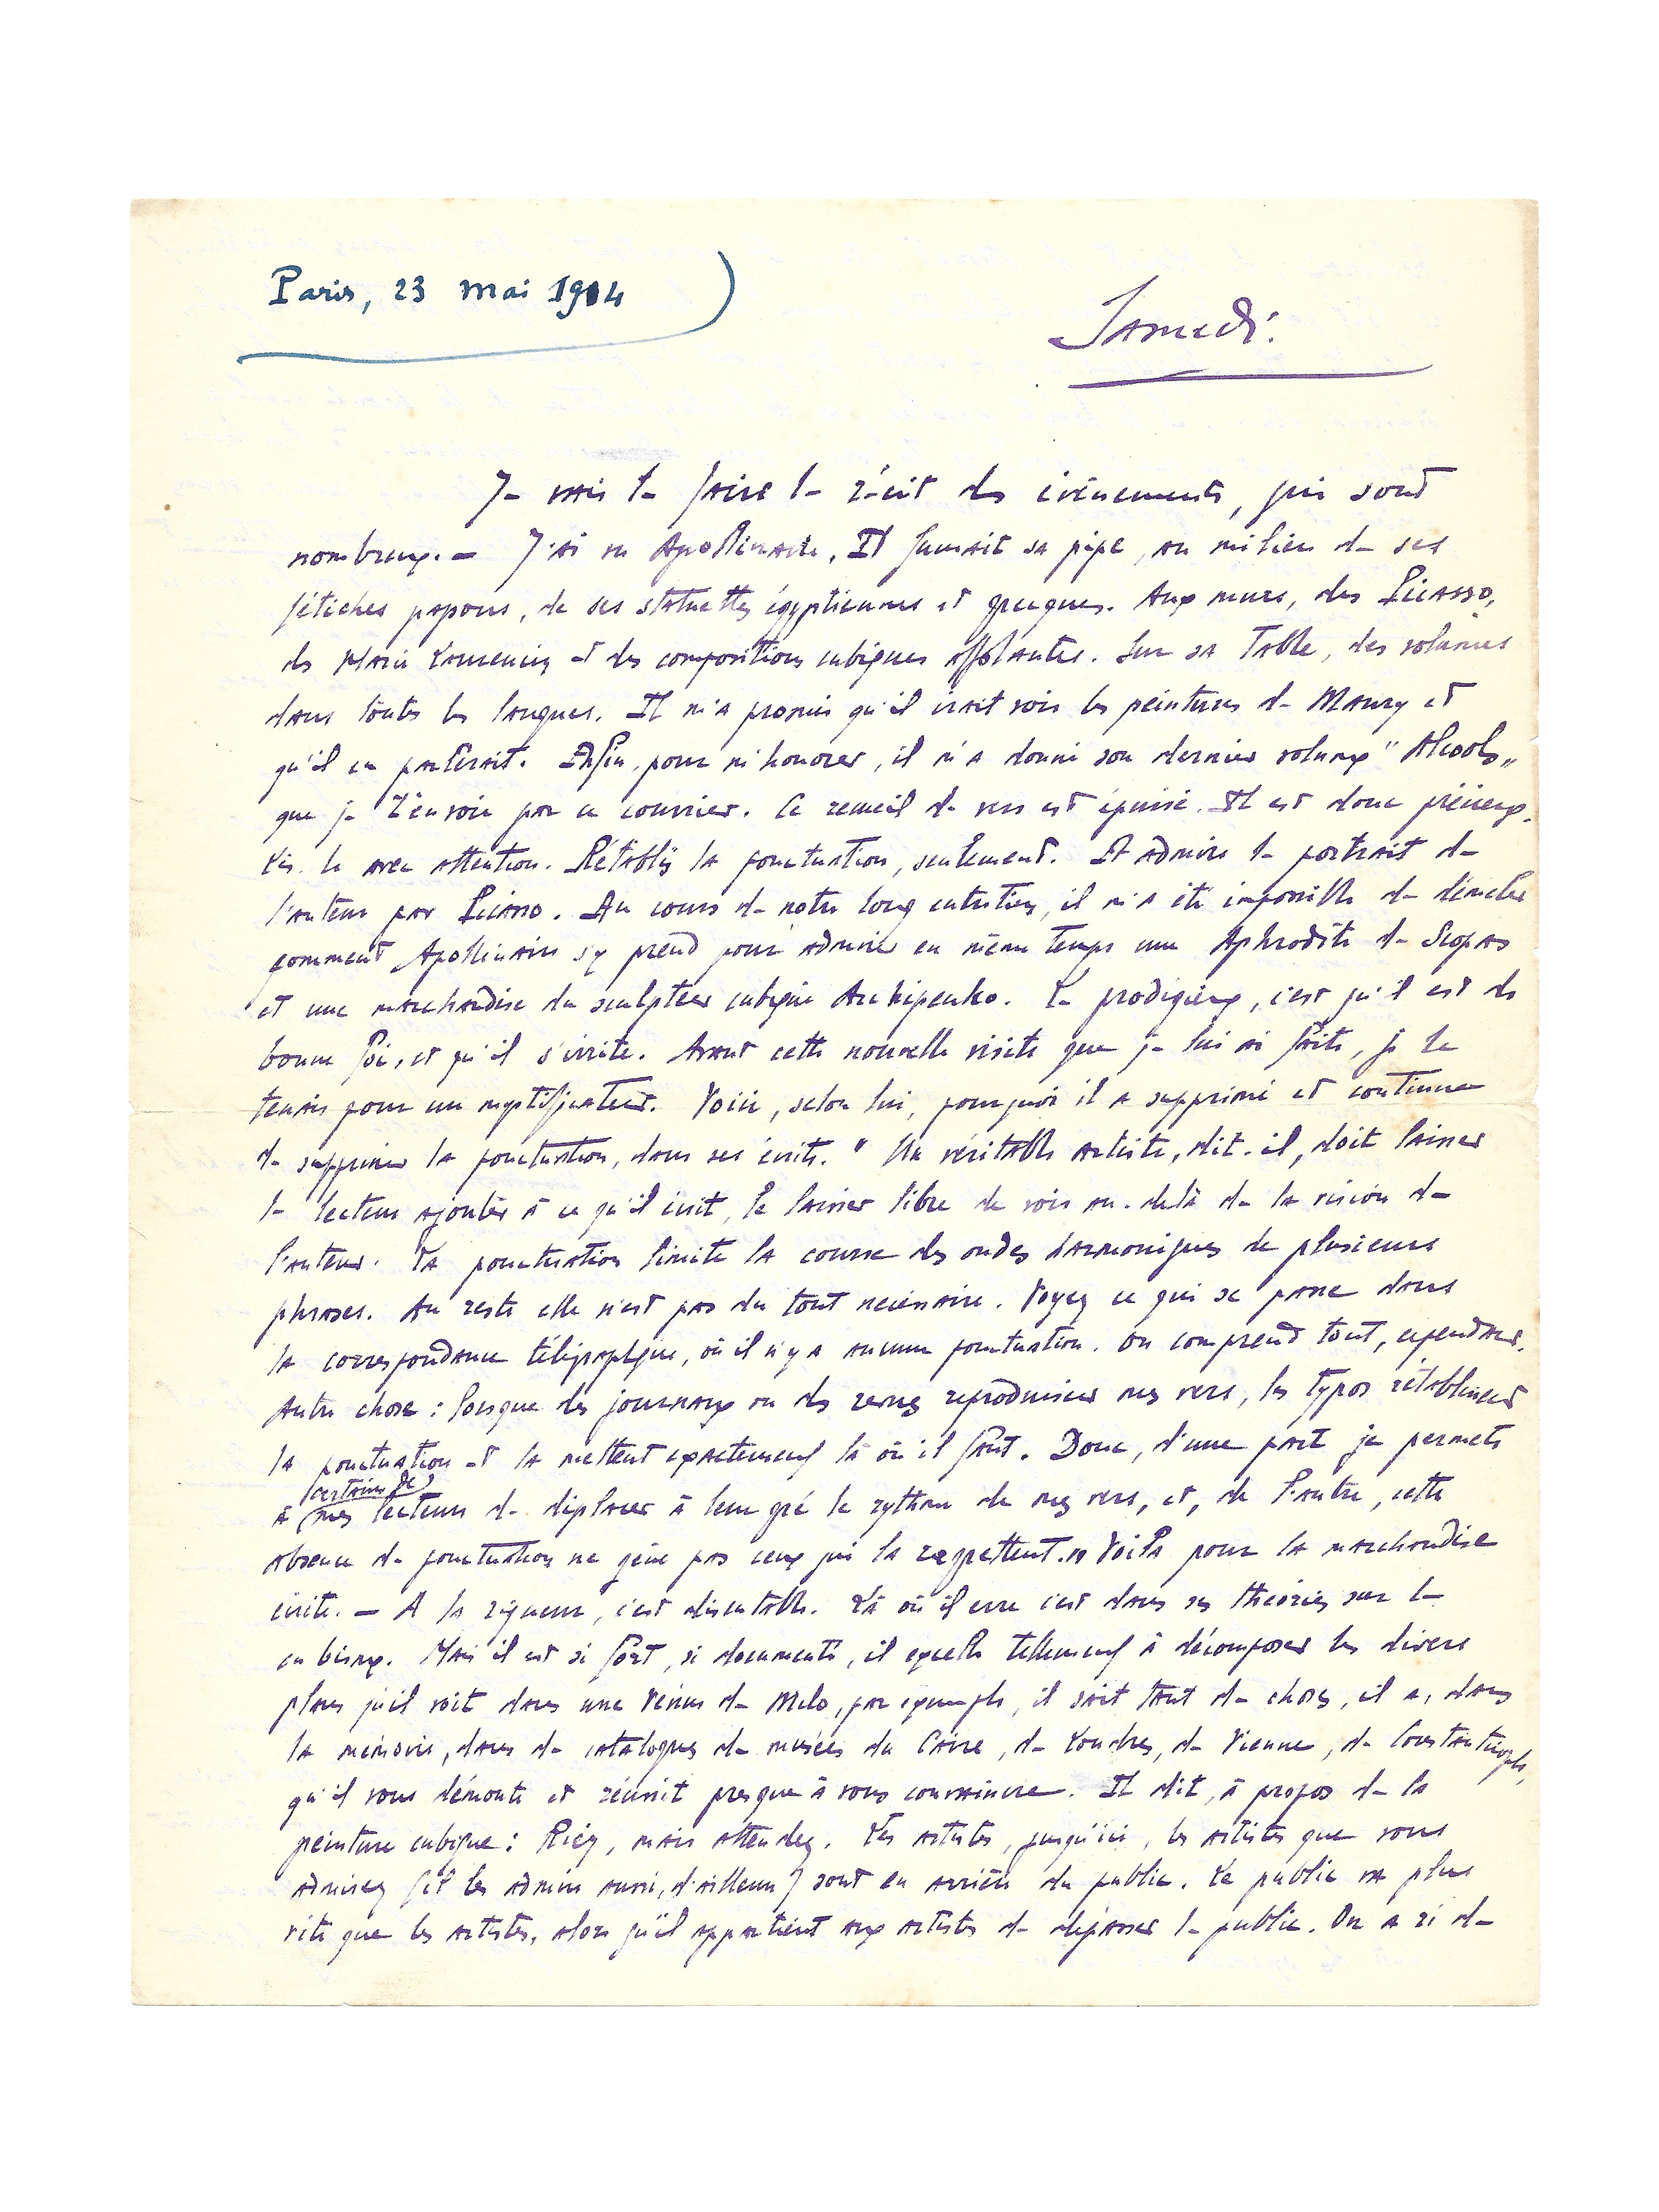 Paris, 23 mai 1914
Samedi.
Je vais te faire le récit des événements, qui sont
nombreux. — J'ai vu Apollinaire. Il fumait sa pipe, au milieu de ses
fétiches papous, de ses statuettes égyptiennes et grecques. Aux murs, des Picasso,
des Marie Laurencin et des compositions cubiques affolantes. Sur sa table, des volumes
dans toutes les langues. Il m'a promis qu'il irait voir les peintures de Maury et
qu'il en parlerait. Enfin, pour m'honorer, il m'a donné son dernier volume "Alcools"
que je t'envoie par ce courrier. Ce recueil de vers est épuisé. Il est donc précieux.
Lis-le avec attention. Rétablis la ponctuation, seulement. Et admire le portrait de
l'auteur par Picasso. Au cours de notre long entretien, il m'a été impossible de démêler
comment Apollinaire s'y prend pour admirer en même temps une Aphrodite de Scopas
et une marchandise du sculpteur cubique Archipenko. Le prodigieux, c'est qu'il est de
bonne foi, et qu'il s'irrite. Avant cette nouvelle visite que je lui ai faite, je le
tenais pour un mystificateur. Voici, selon lui, pourquoi il a supprimé et continue
de supprimer la ponctuation, dans ses écrits. " Un véritable artiste, dit-il, doit laisser
le lecteur ajouter à ce qu'il écrit, le laisser libre de voir au-delà de la vision de
l'auteur. La ponctuation limite la course des ondes harmoniques de plusieurs
phrases. Au reste elle n'est pas du tout nécessaire. Voyez ce qui se passe dans
la correspondance télégraphique, où il n'y a aucune ponctuation. On comprend tout, cependant.
Autre chose : lorsque des journaux ou des revues reproduisent mes vers, les typos rétablissent
la ponctuation et la mettent exactement là où il faut. Donc, d'une part je permets
à (certains de) mes lecteurs de déplacer à leur gré le rythme de mes vers, et, de l'autre, cette
absence de ponctuation ne gêne pas ceux qui la regrettent. " Voilà pour la marchandise
écrite. — A la rigueur, c'est discutable. Là où il erre c'est dans ses théories sur le
cubisme. Mais il est si fort, si documenté, il excelle tellement à décomposer les divers
plans qu'il voit dans une Vénus de Milo, par exemple, il sait tant de choses, il a, dans
la mémoire, tant de catalogues de musées du Caire, de Londres, de Vienne, de Constantinople,
qu'il vous démonte et réussit presque à vous convaincre. Il dit, à propos de la
peinture cubique : Riez, mais attendez. Les artistes, jusqu'ici, les artistes que vous
admirez (il les admire aussi, d'ailleurs) sont en arrière du public. Le public va plus
vite que les artistes, alors qu'il appartient aux artistes de dépasser le public. On a ri de